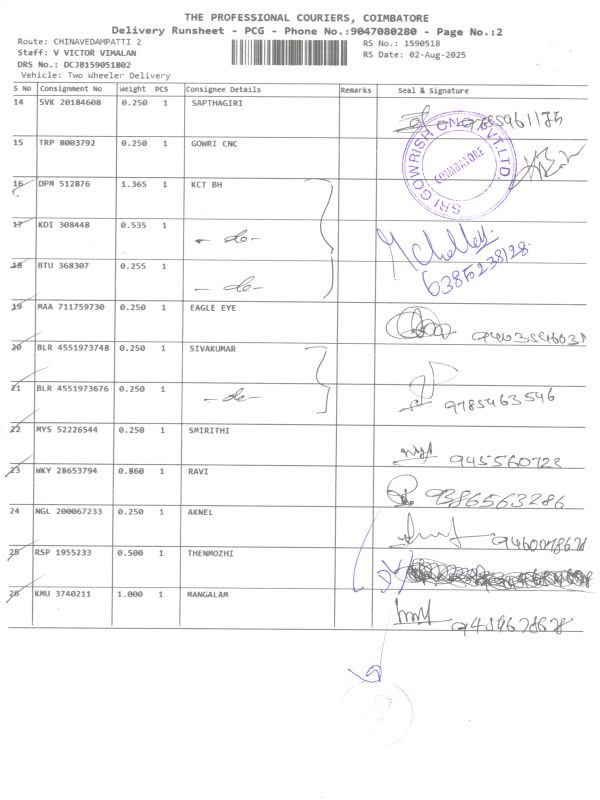 THE PROFESSIONAL COURIERS, COIMBATORE
Delivery Runsheet - PCG - Phone No.:9047080280 - Page No.:2
Route: CHINAVEDAMPATTI 2
RS No.: 1590518
Staff: V VICTOR VIMALAN
RS Date: 02-Aug-2025
DRS No.: DCJB159051802
Vehicle: Two Wheeler Delivery
S No Consignment No Weight PCS Consignee Details Remarks Seal & Signature
14 SVK 20184608 0.250 1 SAPTHAGIRI
15 TRP 8003792 0.250 1 GOWRI CNC
SRI GOWRISH CNC PVT.LTD. COIMBATORE
16 DPM 512876 1.365 1 KCT BH
17 KDI 308448 0.535 1 - do -
6385238128
18 BTU 368307 0.255 1 - do -
19 MAA 711759730 0.250 1 EAGLE EYE
20 BLR 4551973748 0.250 1 SIVAKUMAR
21 BLR 4551973676 0.250 1 - do - 9785463546
22 MYS 52226544 0.250 1 SMIRITHI 945560722
23 WKY 28653794 0.860 1 RAVI 9386563286
24 NGL 200067233 0.250 1 AKNEL
25 RSP 1955233 0.500 1 THENMOZHI
26 KMU 3740211 1.000 1 MANGALAM